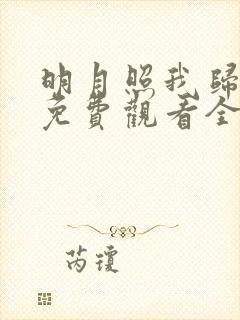 明月照我歸
免費觀看全
芮瓊